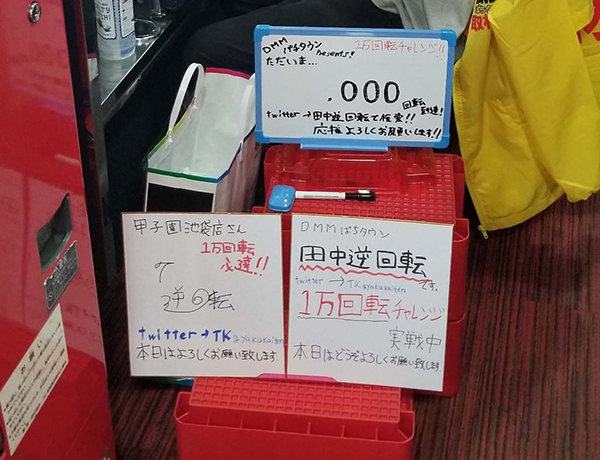 DMM ぱちタウン
Presents!
1万回転チャレンジ!!
ただいま...
.000
回転
到達!
twitter→田中逆回転で検索!!
応援よろしくお願いします!!
甲子園池袋店さん
1万回転
逆回転
twitter→TKgyakukaiten
本日はよろしくお願い致します
DMMぱちタウン
田中逆回転
です。
twitter→TKgyakukaiten
1万回転チャレンジ
実戦中
本日はどうぞよろしくお願い致します